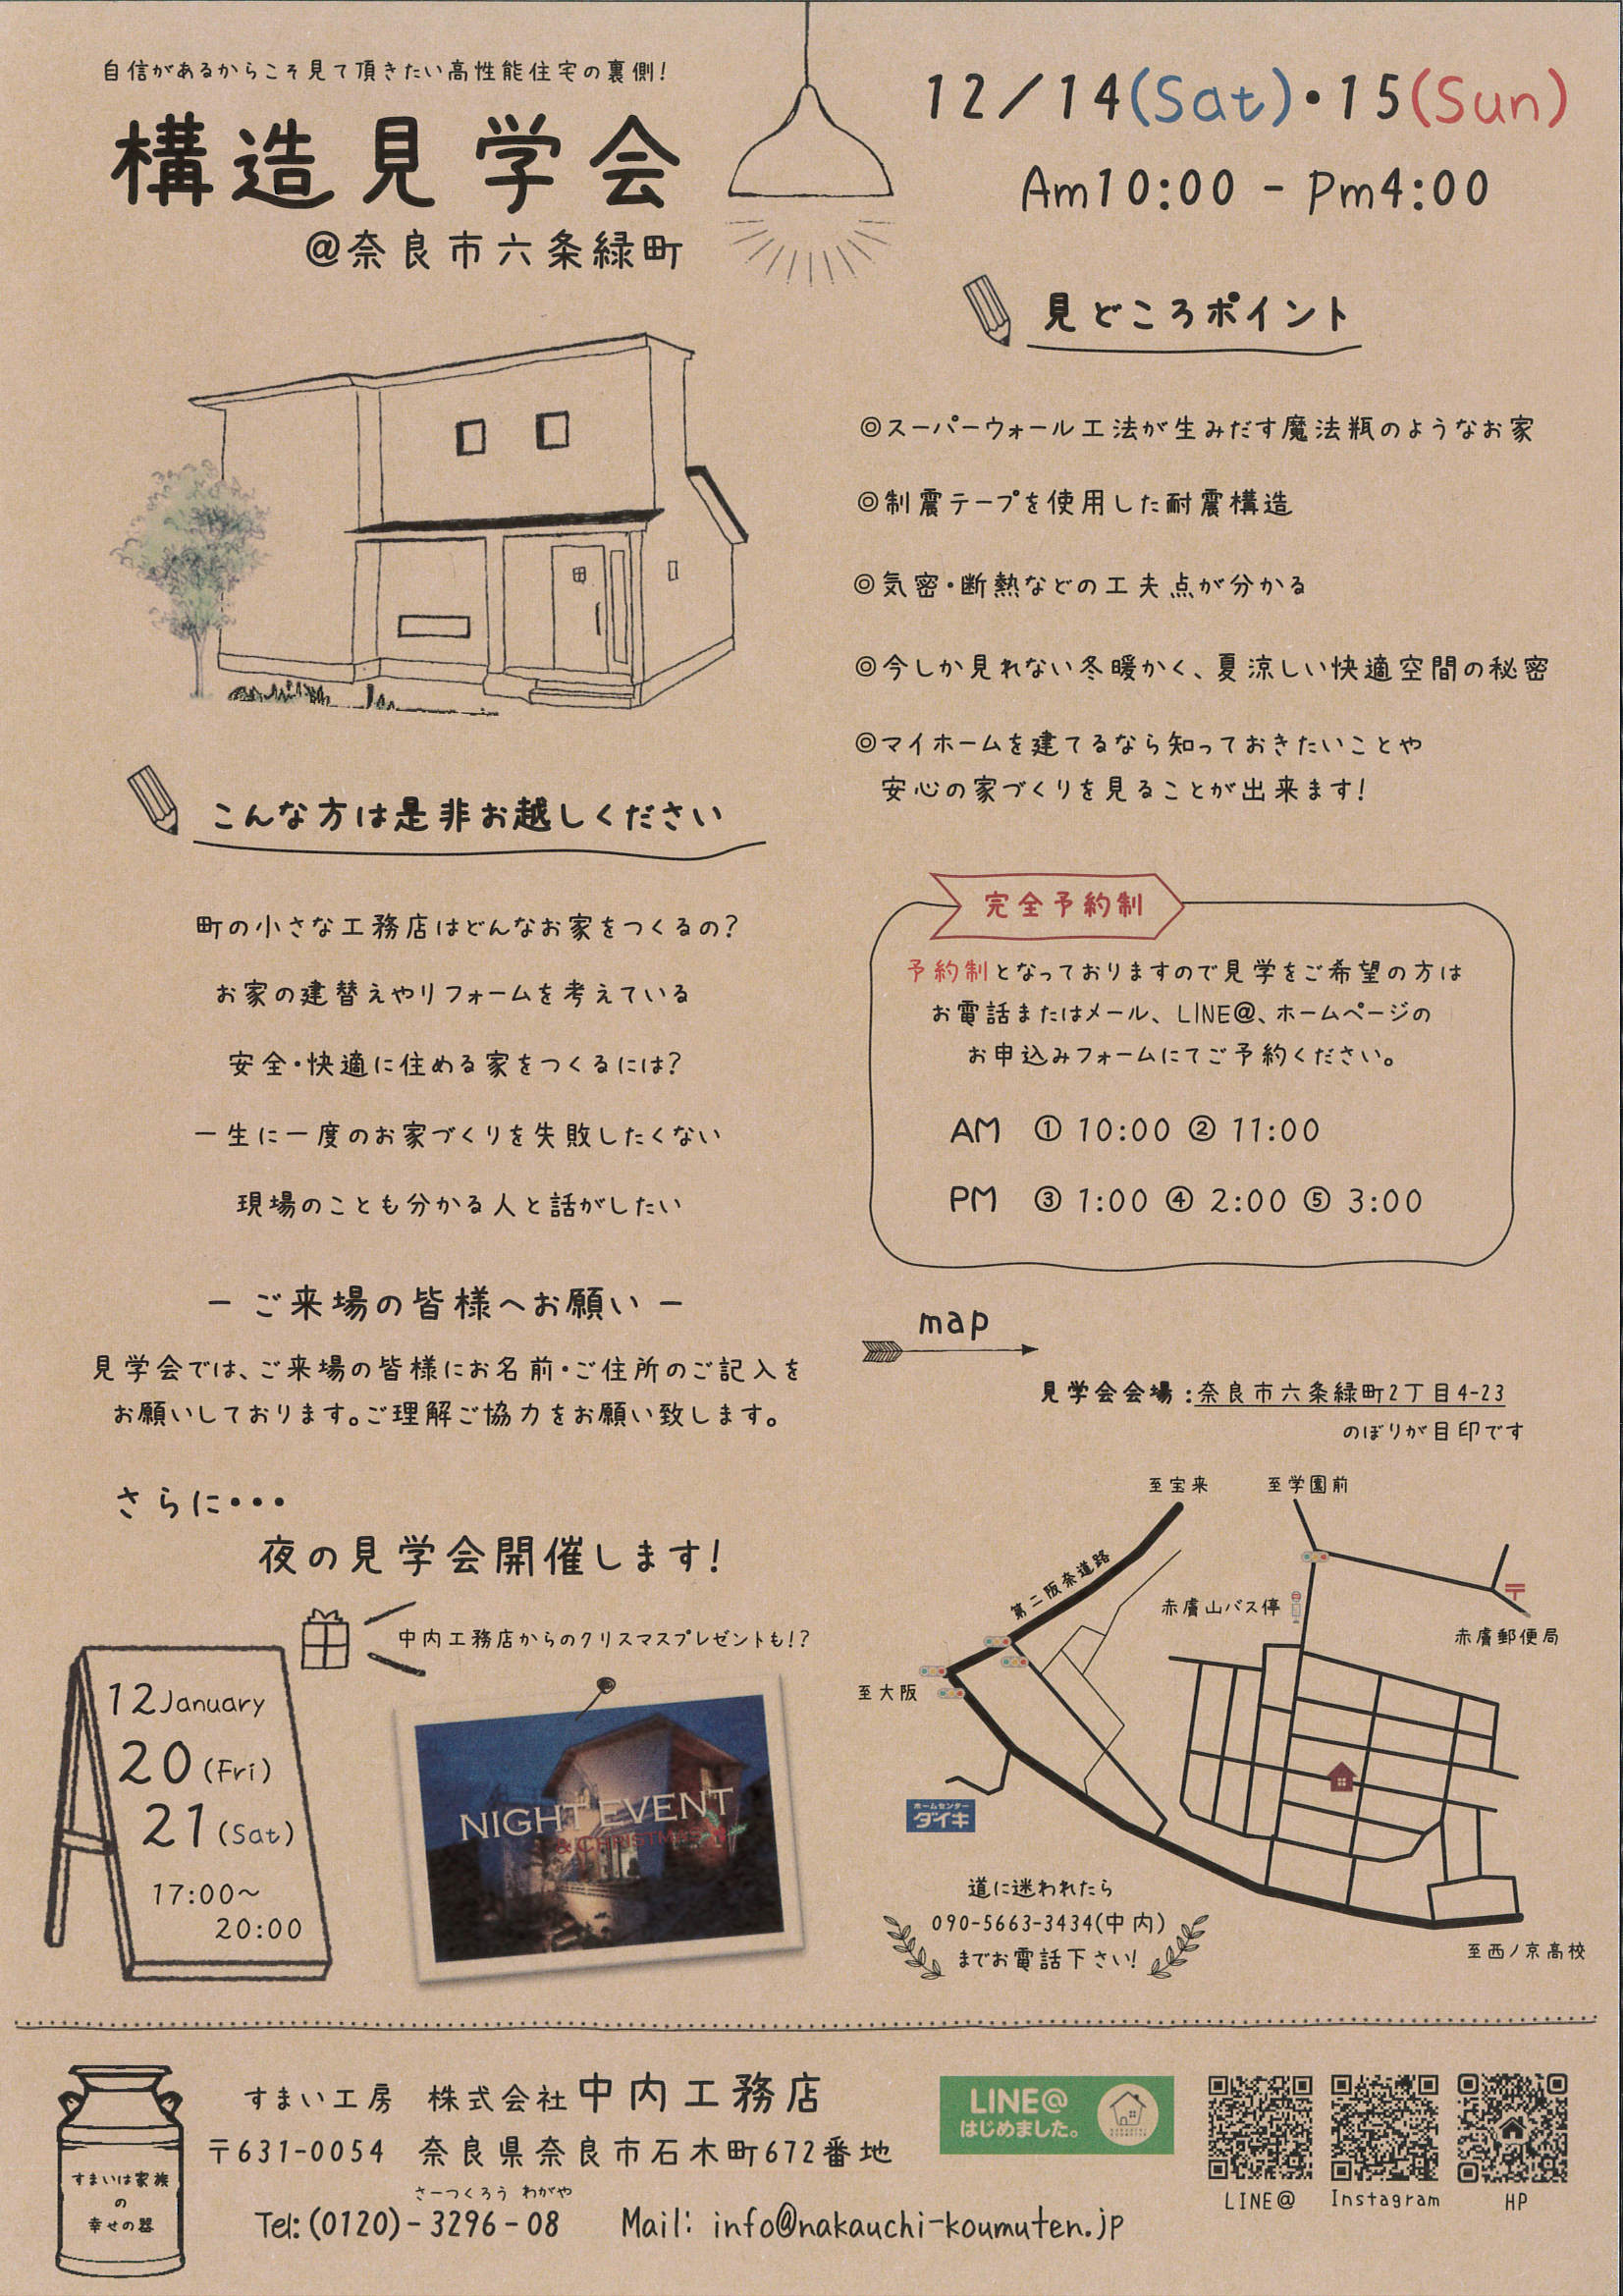 自信があるからこそ見て頂きたい高性能住宅の裏側!
構造見学会
@奈良市六条緑町
12/14(Sat)・15(Sun)
Am10:00 - Pm4:00
見どころポイント
◎スーパーウォール工法が生みだす魔法瓶のようなお家
◎制震テープを使用した耐震構造
◎気密・断熱などの工夫点が分かる
◎今しか見れない冬暖かく、夏涼しい快適空間の秘密
◎マイホームを建てるなら知っておきたいことや
安心の家づくりを見ることが出来ます!
こんな方は是非お越しください
町の小さな工務店はどんなお家をつくるの?
お家の建替えやリフォームを考えている
安全・快適に住める家をつくるには?
一生に一度のお家づくりを失敗したくない
現場のことも分かる人と話がしたい
完全予約制
予約制となっておりますので見学をご希望の方は
お電話またはメール、LINE@、ホームページの
お申込みフォームにてご予約ください。
AM ① 10:00 ② 11:00
PM ③ 1:00 ④ 2:00 ⑤ 3:00
- ご来場の皆様へお願い -
見学会では、ご来場の皆様にお名前・ご住所のご記入を
お願いしております。ご理解ご協力をお願い致します。
さらに・・・
夜の見学会開催します!
中内工務店からのクリスマスプレゼントも!?
12January
20(Fri)
21(Sat)
17:00~
20:00
NIGHT EVENT
&CHRISTMAS
map
見学会会場:奈良市六条緑町2丁目4-23
のぼりが目印です
至宝来
至学園前
第二阪奈道路
赤膚山バス停
〒
赤膚郵便局
至大阪
ホームセンター
ダイキ
至西ノ京高校
道に迷われたら
090-5663-3434(中内)
までお電話下さい!
すまいは家族
の
幸せの器
すまい工房 株式会社中内工務店
〒631-0054 奈良県奈良市石木町672番地
さーつくろう わがや
Tel:(0120)-3296-08 Mail: info@nakauchi-koumuten.jp
LINE@
はじめました。
LINE@
Instagram
HP